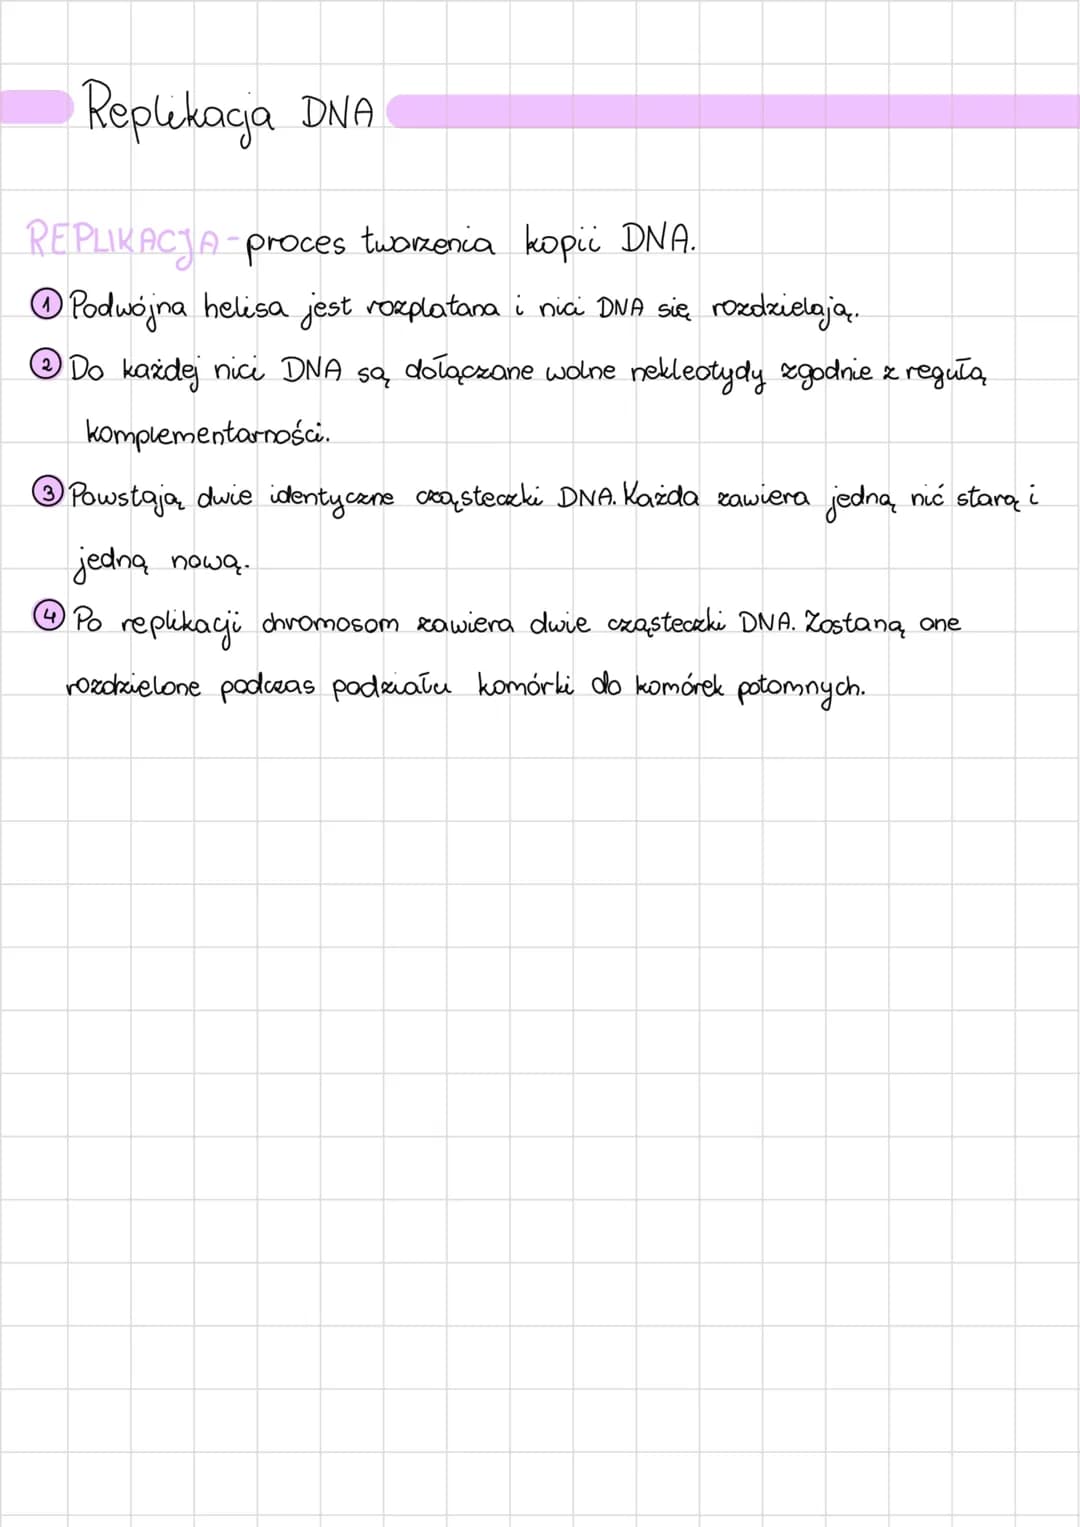 Replikacja DNA
REPLIKACJA - proces tworzenia kopii DNA.
1 Podwójna helisa jest rozplatana i nici DNA się rozdzielają.
2 Do każdej nici DNA są dołączane wolne nekleotydy zgodnie z regułą
komplementarności.
3 Powstają dwie identyczne cząsteczki DNA. Każda zawiera jedną nić starą i
jedną nową.
4 Po replikacji chromosom zawiera dwie cząsteczki DNA. Zostaną one
rozdzielone podczas podziału komórki do komórek potomnych.